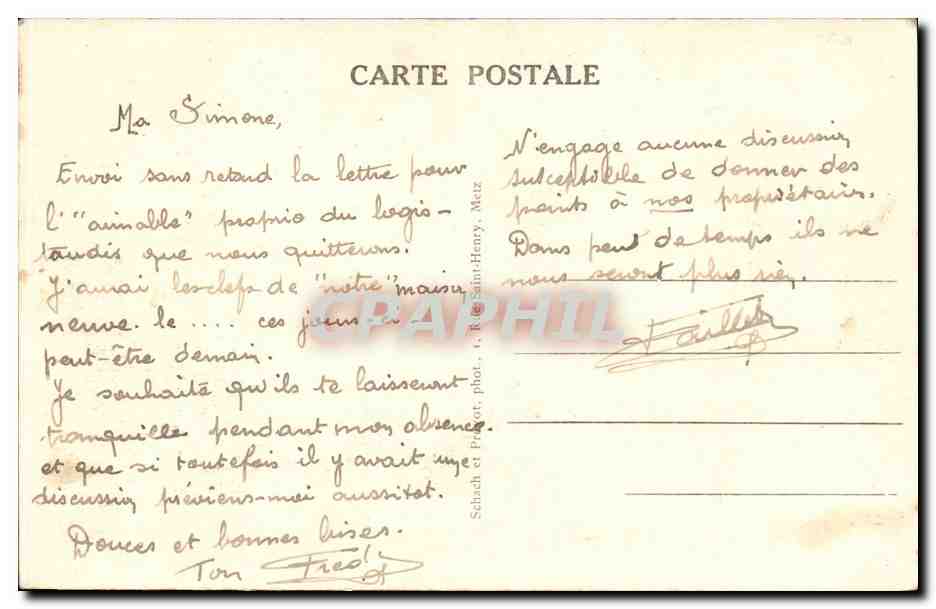 CARTE POSTALE
Ma Simone,
Envoi sans retard la lettre pour
l'"aimable" proprio du logis-
taudis que nous quitterons.
J'aurai les clefs de "notre" maison
neuve. le .... ces jours-ci -
peut-être demain.
Je souhaite qu'ils te laisseront
tranquille pendant mon absence.
et que si toutefois il y avait une
discussion préviens-moi aussitot.
Douces et bonnes bises.
Ton Fred
N'engage aucune discussion
susceptible de donner des
points à nos propriétaires.
Dans peu de temps ils ne
nous seront plus rien.
Schach et phot., 1, Rue Saint-Henry, Metz
CARPHIL